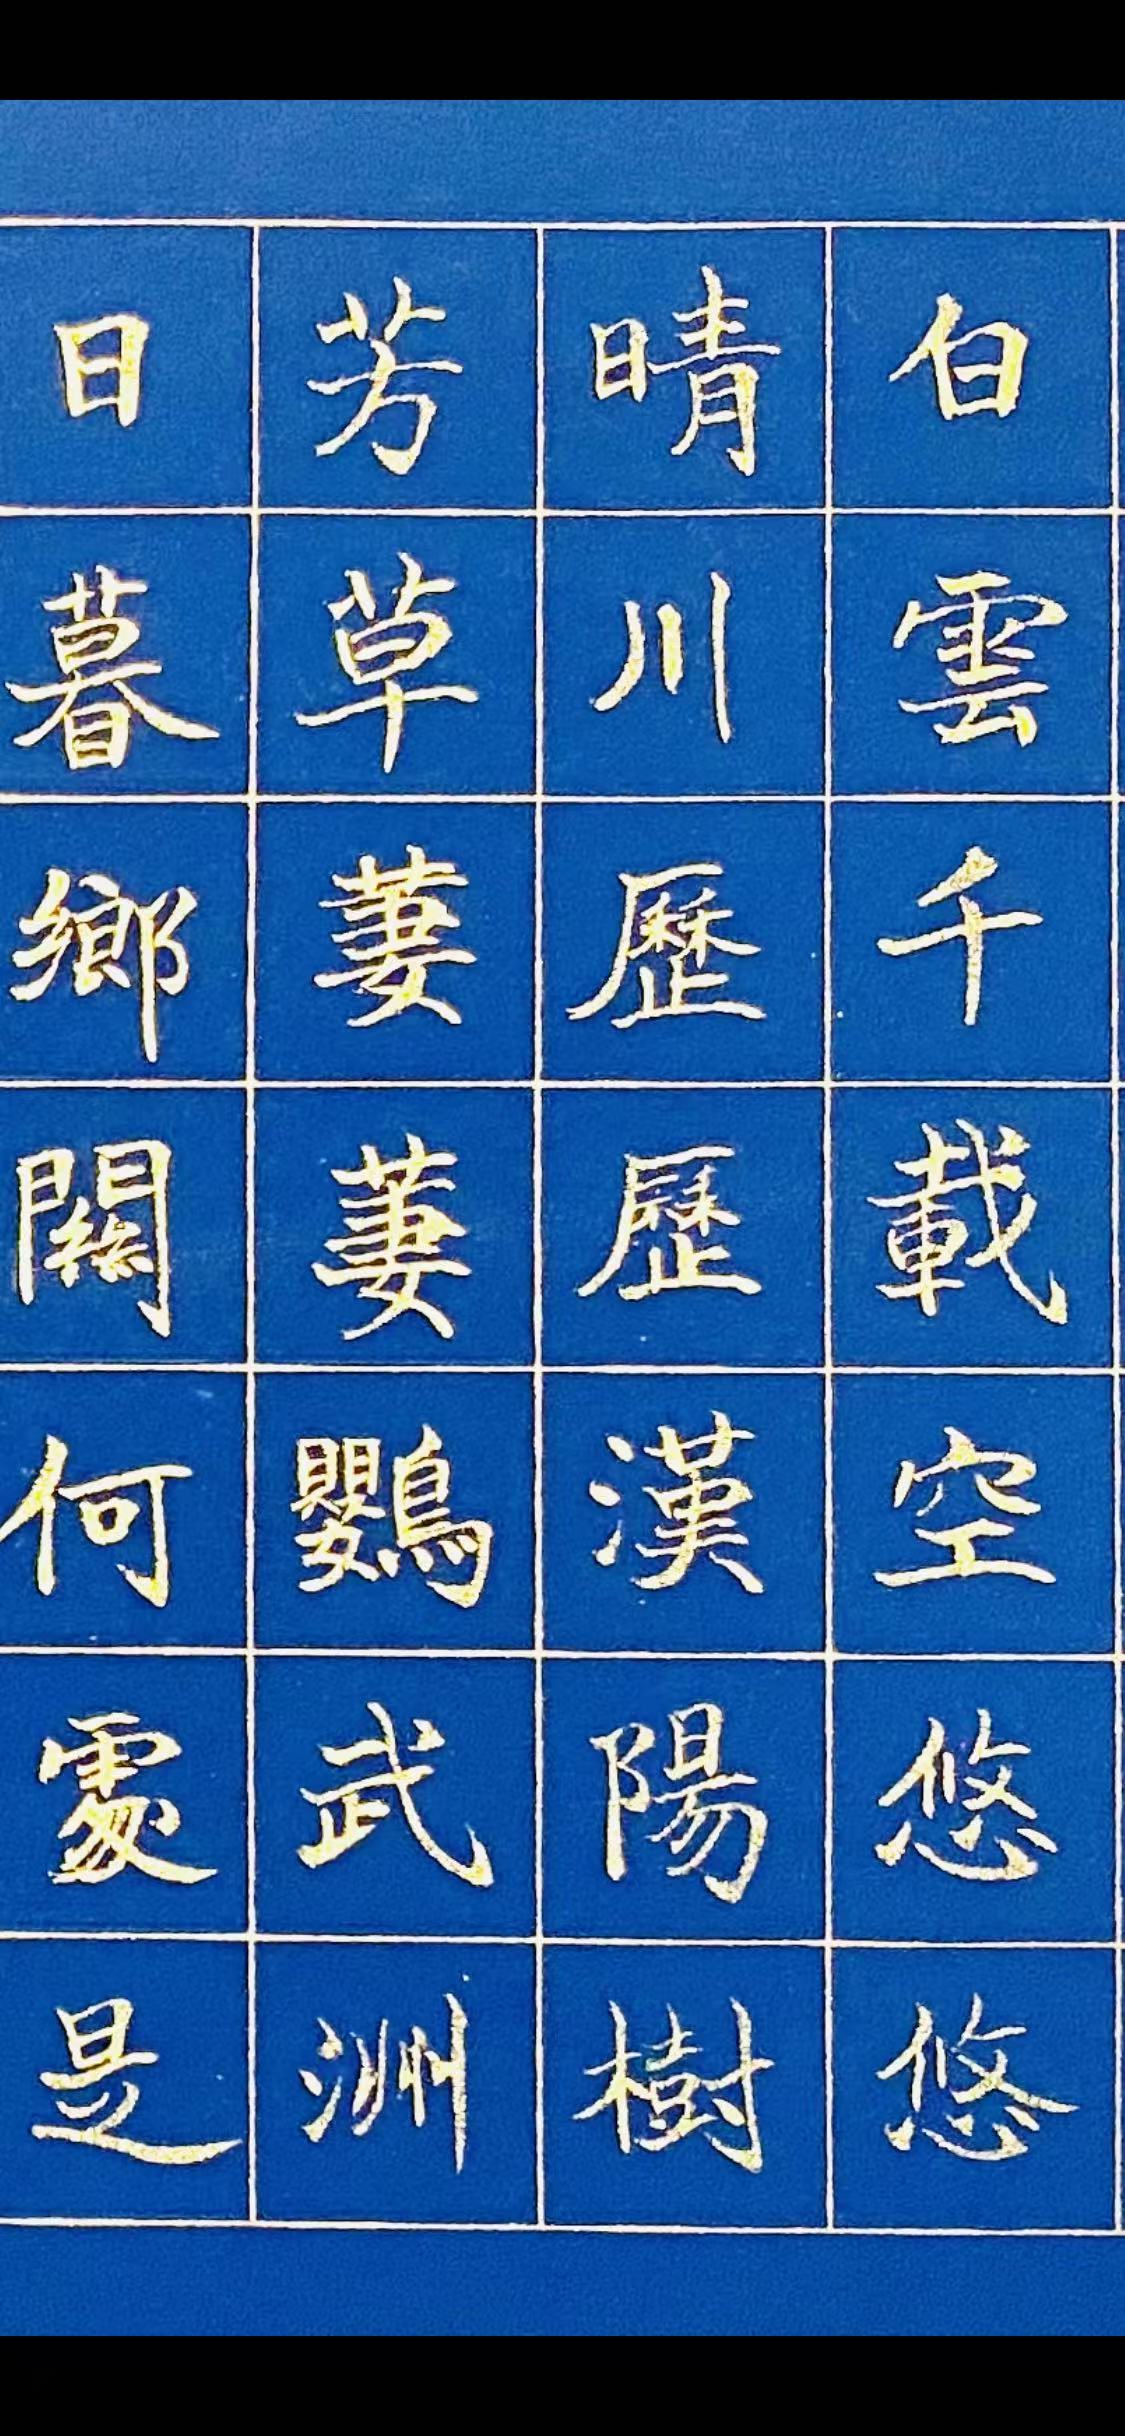 白雲千載空悠悠
晴川歷歷漢陽樹
芳草萋萋鸚武洲
日暮鄉關何處是